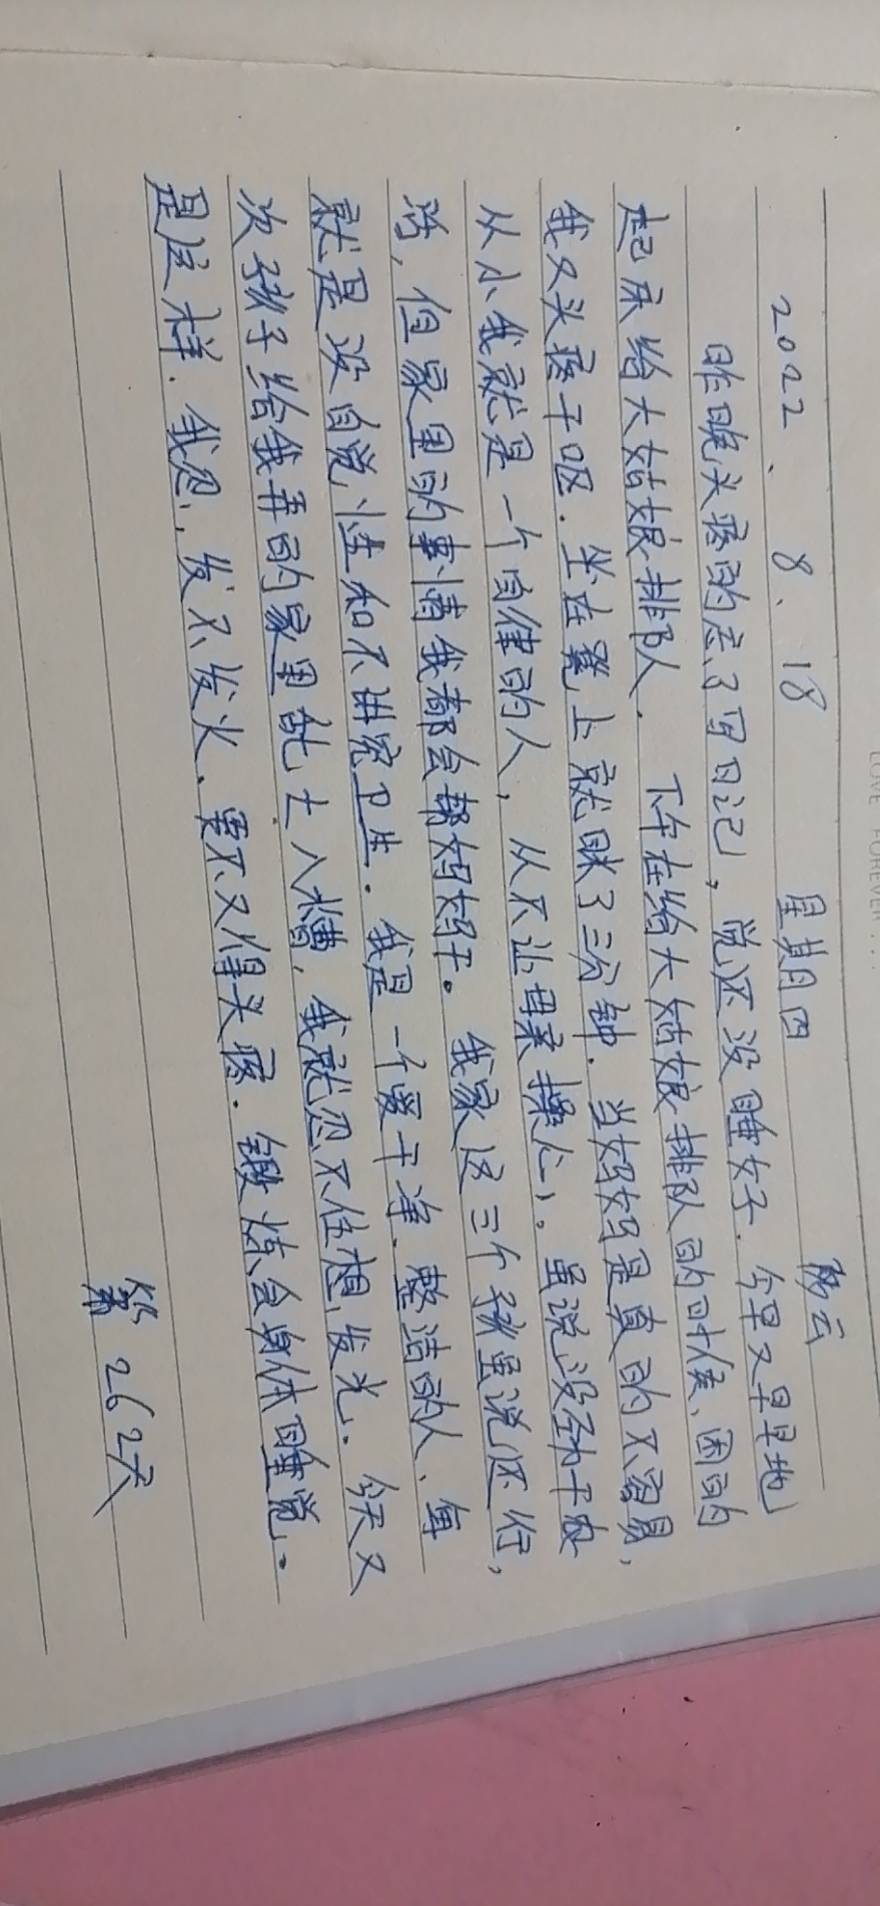 2022、8、18 星期四 多云
昨晚头疼的忘了写日记,觉还没睡好.今早又早早地
起床给大姑娘排队.下午在给大姑娘排队的时候、困的
我又头疼干呕.坐在凳上就眯了三分钟.当妈妈是真的不容易,
从小我就是一个自律的人,从不让母亲操心。虽说没干农
活,但家里的事情我都会帮妈妈干。我家这三个孩虽说还行,
就是没自觉性和不讲究卫生.我是一个爱干净.整洁的人、每
次孩子给我弄的家里乱七八糟,我就忍不住想发火.今天又
是这样.我忍,发不发火、要不又得头疼.锻炼会身体睡觉。
第262天
LOVE FOREVER...